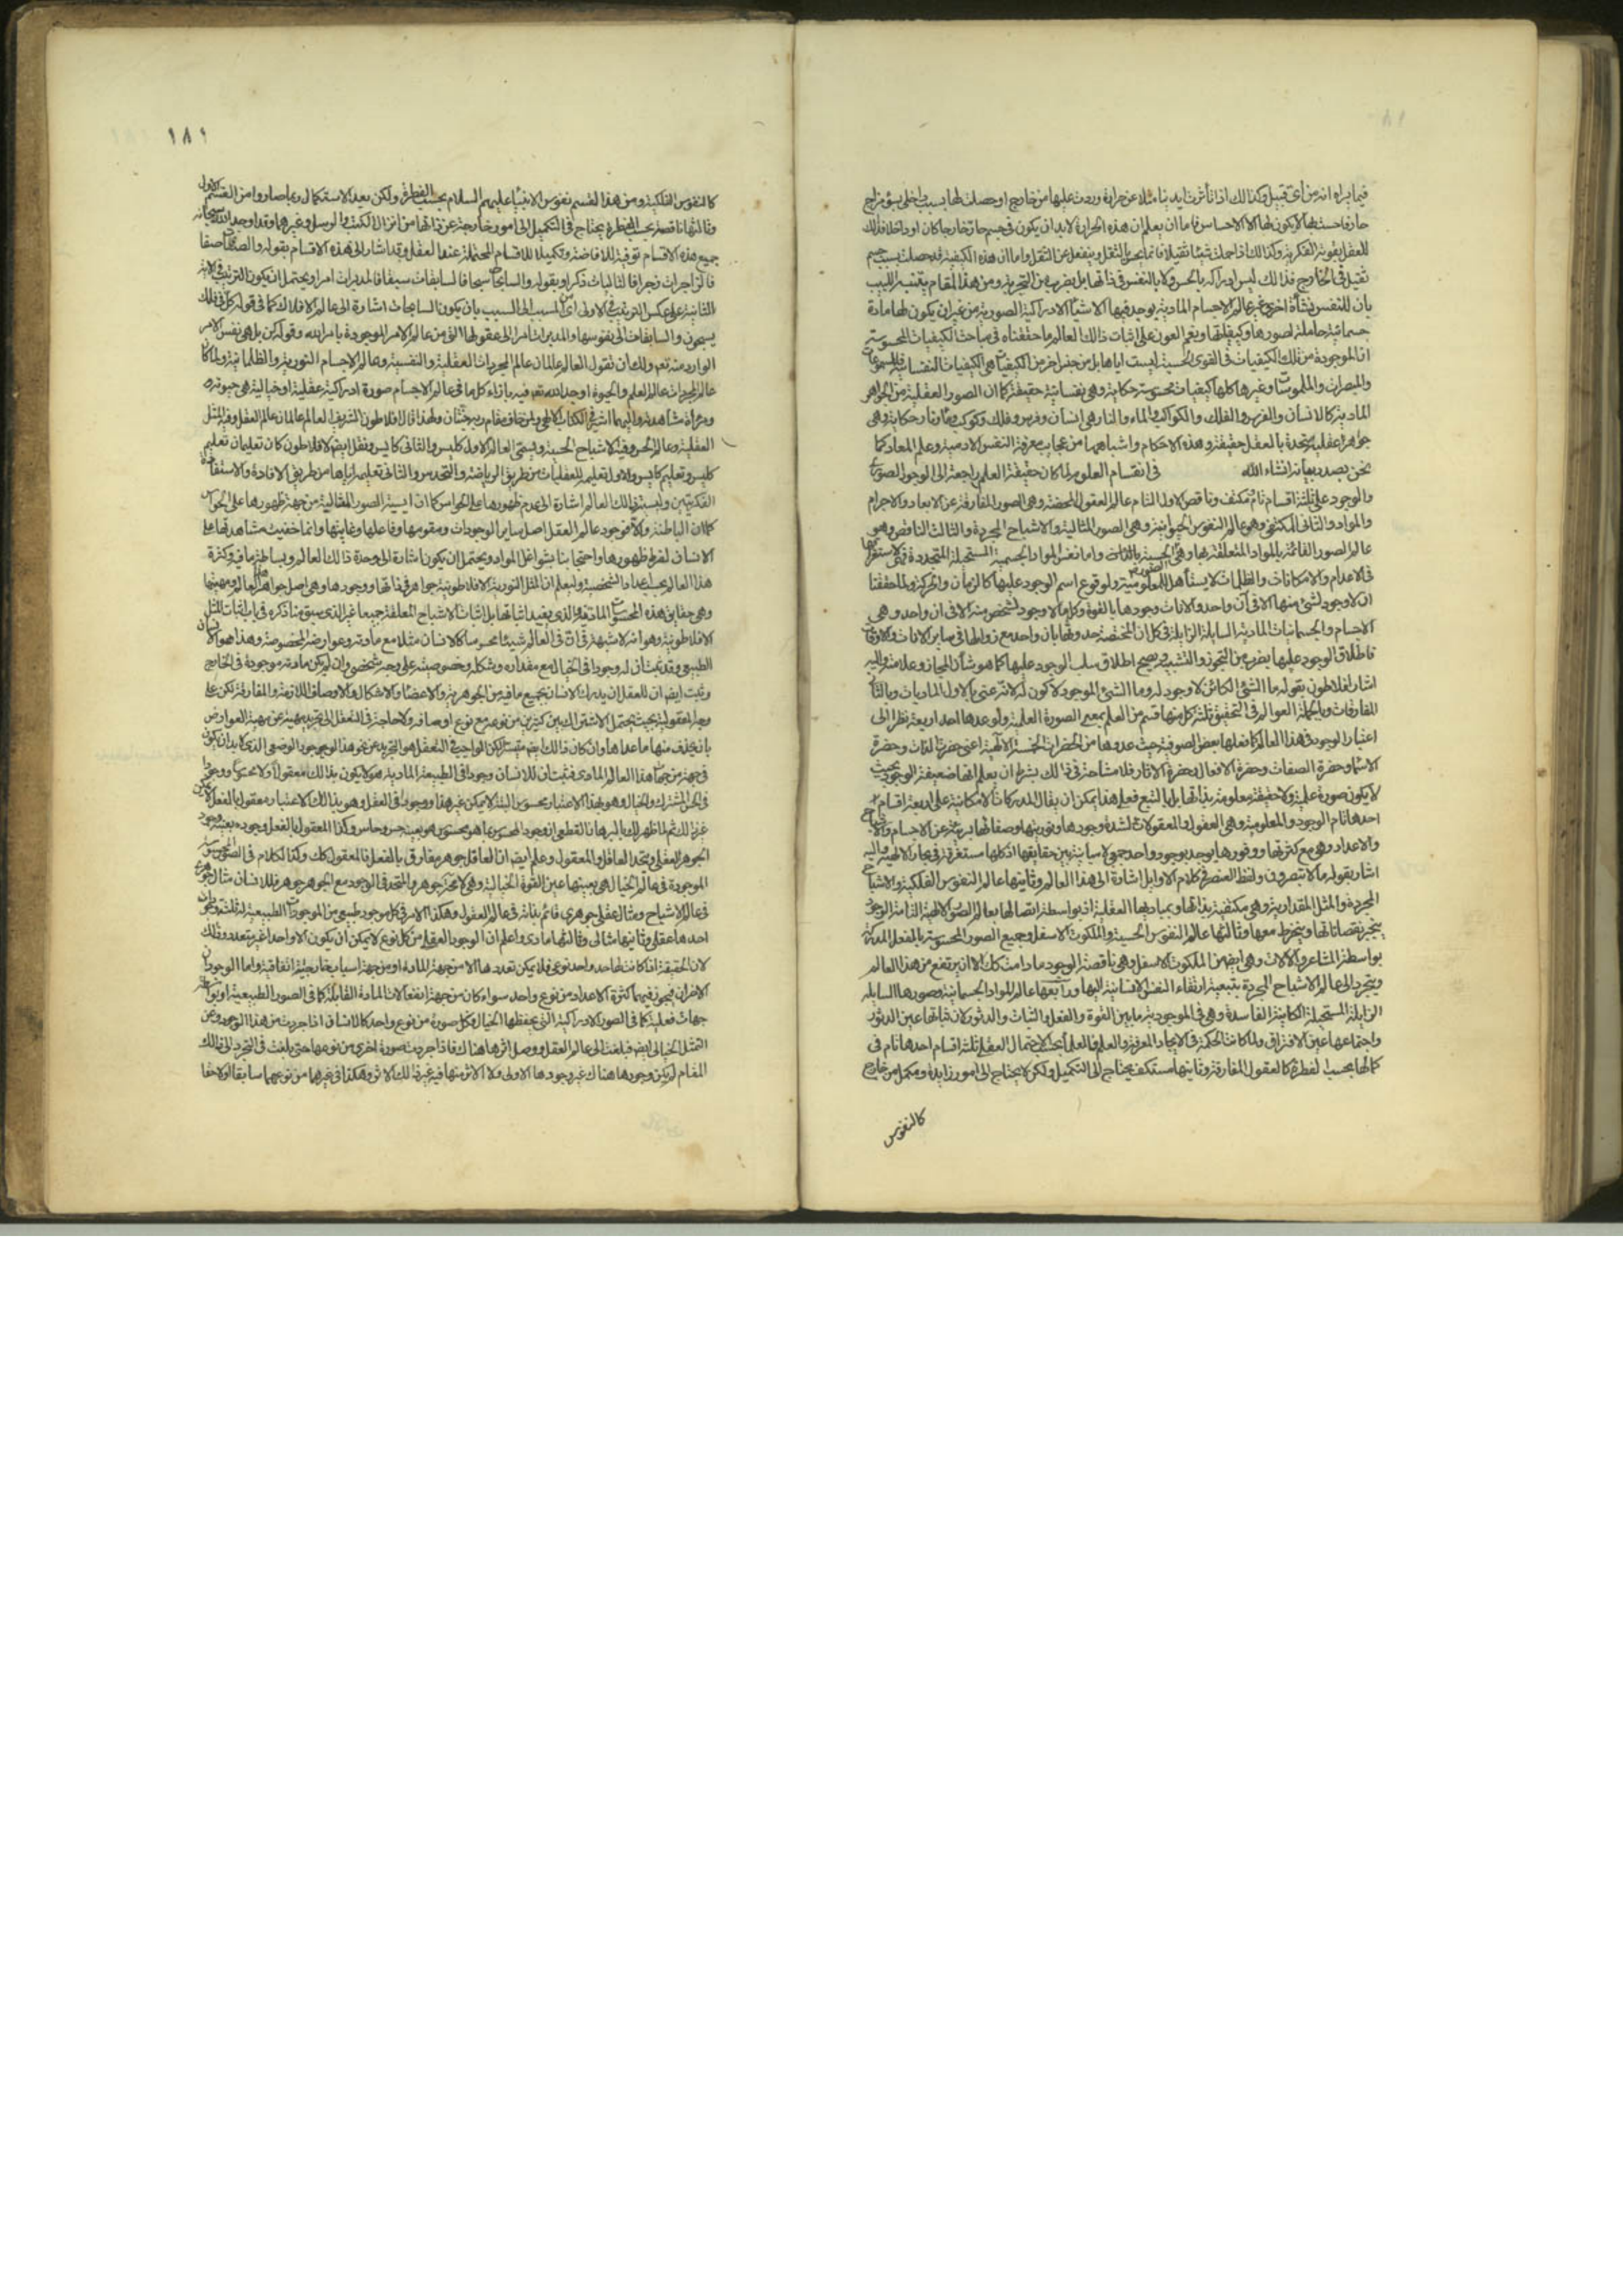 فيما يراه انه من اى قبيل وكذا لك اذا تأثرت ايدينا مثلا عن حرارة وردت عليها من خارج او حصلت لها بسبب داخلى بسؤ مزاج
حار فاحست بها لا يكون لها الا الاحساس فاما ان يعلم ان هذه الحرارة لابد ان يكون فى جسم حار خارجا كان او داخلا فذلك
للعقل بقوته الفكرية وكذا لك اذا حملت شيئا ثقيلا فانما يحس بالثقل وينفعل عن الثقل واما ان هذه الكيفية قد حصلت بسبب جسم
ثقيل فى الخارج فذا لك ليس ادراكه بالحس ولا بالنفس فى ذاتها بل بضرب من التجربة ومن هذا المقام يتنبه اللبيب
بان للنفس نشأة اخرى غير عالم الاجسام المادية يوجد فيها الاشيأ الادراكية الصورية من غير ان يكون لها مادة
جسمانية حاملة لصورها وكيفياتها ونعم العون على اثبات ذالك العالم ما حققناه فى مباحث الكيفيات المحسوسة
ان الموجودة من تلك الكيفيات فى القوى الحسية ليست اياها بل من جنس اخر من الكيفيات هى الكيفيات النفسانية فالمسموعات
والمبصرات والملموسات وغيرها كلها كيفيات محسوسة حكاية وهى نفسانية حقيقة كما ان الصور العقلية من الجواهر
المادية كالانسان والفرس والفلك والكواكب والماء والنار هى انسان وفرس وفلك وكوكب وماء ونار حكاية وهى
جواهر عقلية متحدة بالعقل حقيقة وهذه الاحكام واشباهها من عجايب معرفة النفس الادمية وعلم المعاد كما
نحن بصدد بيانه انشاء الله فى انقسام العلوم لما كان حقيقة العلم راجعة الى الوجود الصورى
والوجود على ثلثة اقسام تام مكتف وناقص الاول التام عالم العقول المحضة وهى الصور المفارقة عن الابعاد والاجرام
والمواد والثانى المكتفى وهو عالم النفوس الحيوانية وهى الصور المثالية والاشباح المجردة والثالث الناقص وهو
عالم الصور القائمة بالمواد المتعلقة بها وهى الحسية واما نفس المواد الجسمية المستحيلة المتجددة
فى الاعدام والامكانات والظلمات لا يستأهل للمعلومية ولوقوع اسم الوجود عليها كالزمان والحركة لما حققنا
ان لا وجود لشئ منها الا فى آن واحد والانات وجودها بالقوة وكل ما لا وجود لشخص منه الا فى ان واحد وهى
الاجسام والجسمانيات المادية السايلة الزايلة فى كل ان المختصة حدوثها بان واحد مع زوالها فى ساير الانات والاوقات
فاطلاق الوجود عليها بضرب من التجوز والتشبيه ويصح اطلاق سلب الوجود عليها كما هو شأن المجاز وعلامته واليه
اشار افلاطون بقوله ما الشئ الكائن لا وجود له وما الشئ الموجود لا كون له لانه عنى بالاول الماديات وبالثانى
المفارقات وبالجملة العوالم فى التحقيق ثلثة كل منها قسم من العلم بمعنى الصورة العلمية ولو عدها احد اربعة نظرا الى
اعتبار الوجود فى هذا العالم كما فعلها بعض الصوفية حيث عدوها من الحضرات الخمسة الالهية اعنى حضرة الذات وحضرة
الاسماء وحضرة الصفات وحضرة الافعال وحضرة الاثار فلا مشاحة فى ذالك بشرط ان يعلم انها ضعيفة الوجود بحيث
لا يكون صورة علمية ولا حقيقة معلومة بذاتها بل بالتبع فعلى هذا يمكن ان يقال المدركات الامكانية على اربعة اقسام
احدها تام الوجود والمعلومية وهى العقول والمعقولات لشدة وجودها ونوريتها وصفائها بريئة عن الاجسام والاشباح
والاعداد وهى مع كثرتها ووفورها يوجد بوجود واحد جمعى لا مباينة بين حقايقها اذ كلها مستغرقة فى بحار الالهية واليه
اشار بقوله ما لا تبصرون ولفظ العنصر فى كلام الاوايل اشارة الى هذا العالم وثانيتها عالم النفوس الفلكية والاشباح
المجردة والمثل المقدارية وهى مكتفية بذاتها وبمباديها العقلية اذ بواسطة اتصالها بعالم الصور الالهية التامة الوجود
ينجبر نقصاناتها وينخرط معها وثالثها عالم النفوس الحسية والملكوت الاسفل وجميع الصور المحسوسة بالفعل المدركة
بواسطة المشاعر والالات وهى ايضا من الملكوت الاسفل وهى ناقصة الوجود ما دامت كك الا ان يرتفع من هذا العالم
ويتجرد الى عالم الاشباح المجردة بتبعية ارتقاء النفس الانسانية اليها ورابعها عالم المواد الجسمانية وصورها السايلة
الزايلة المستحيلة الكاينة الفاسدة وهى فى الموجودية ما بين القوة والفعل والثبات والدثور لان ثباتها عين الدثور
واجتماعها عين الافتراق ولما كانت الحكمة فى الايجاد المعرفة والعلم فالعلمأ بحسب الاحتمال العقلى ثلثة اقسام احدها تام فى
كمالها بحسب الفطرة كالعقول المفارقة وثانيها مستكف يحتاج الى التكميل ولكن لا يحتاج الى امور زايدة ومكمل من خارج
كالنفوس
١٨١
كالنفوس الفلكية ومن هذا القسم نفوس الانبيأ عليهم السلام بحسب الفطرة ولكن بعد الاستكمال ربما صاروا من القسم الاول
وثالثها ناقصة بحسب الفطرة يحتاج فى التكميل الى امور خارجة عن ذاتها من انزال الكتب والرسل وغيرهما وقد اوجد الله سبحانه
جميع هذه الاقسام توفية للافاضة وتكميلا للاقسام المحتملة عند العقل وقد اشار الى هذه الاقسام بقوله والصافات صفا
فالزاجرات زجرا فالتاليات ذكرا وبقوله والسابحات سبحا فالسابقات سبقا فالمدبرات امرا ويحتمل ان يكون الترتيب فى الاية
الثانية على عكس الترتيب فى الاولى اى من المسبب الى السبب بان يكون السابحات اشارة الى عالم الافلاك كما فى قوله كل فى فلك
يسبحون والسابقات الى نفوسها والمدبرات امرا الى عقولها التى من عالم الامر الموجودة بامر الله وقوله كن بل هى نفس الامر
الوارد منه تعم ولك ان تقول العالم عالمان عالم المجردات العقلية والنفسية وعالم الاجسام النورية والظلمانية ولما كان
عالم المجردات عالم العلم والحيوة اوجد الله تعم فيه بازاء كل ما فى عالم الاجسام صورة ادراكية عقلية او خيالية هى حيوته
ومرآة مشاهدته واليهما اشير فى الكتاب الالهى ولمن خاف مقام ربه جنتان ولهذا قال افلاطون الشريف العالم عالمان عالم العقل وفيه المثل
العقلية وعالم الحس وفيه الاشباح الحسية ويسمى العالم الاول كليس والثانى كايس ونقل ايضا لافلاطون كان تعليمان تعليم
كليس وتعليم كايس والاول تعليمه للعقليات من طريق الرياضة والتحدس والثانى تعليمه اياها من طريق الافادة والاستفادة
الفكريتين وليسية ذالك العالم اشارة الى عدم ظهورها على الحواس كما ان ايسية الصور المثالية من جهة ظهورها على الحواس
كما ان الباطنة والا فوجود عالم العقل اصل ساير الوجودات ومقومها وفاعلها وغايتها وانما خفيت مشاهدتها على
الانسان لفرط ظهورها واحتجابنا بشواغل المواد ويحتمل ان يكون اشارة الى وحدة ذالك العالم وبساطة ما فيه وكثرة
هذا العالم بحسب اعداد الشخصية وليعلم ان المثل النورية الافلاطونية جواهر فى ذاتها ووجودها وهى اصل جواهر هذا العالم ومهيتها
وهى حقايق هذه المحسوسات المادية والذى يفيد اثباتها بل اثبات الاشباح المعلقة جميعا غير الذى سبق منا ذكره فى باب اثبات المثل
الافلاطونية وهو انه لا شبهة فى ان فى العالم شيئا محسوسا كالانسان مثلا مع مادته وعوارضه المخصوصة وهذا هو الانسان
الطبيعى وقد ثبت ان له وجودا فى الخيال مع مقداره وشكله وخصوصيته على وجه شخصى وان لم يكن مادته موجودة فى الخارج
وثبت ايضا ان للعقل ان يدرك الانسان بجميع ما فيه من الجوهرية والاعضأ والاشكال والاوصاف اللازمة والمفارقة لكن على
وجه المعقولية بحيث يحتمل الاشتراك بين كثيرين من نوعه مع نوع اوصافه ولا حاجة فى التعقل الى تجريد مهيته عن مهية العوارض
بان يحذف منها ما عداها وان كان ذالك ايضا متيسرا لكن الواجب فى التعقل هو التجريد عن نحو هذا الوجود الوضعى الذى لابد ان يكون
فى جهة من جهات هذا العالم المادى فثبت ان للانسان وجودا فى الطبيعة المادية هو لا يكون بذالك معقولا ولا محسوسا ووجودا
فى الحس المشترك والخيال وهو بهذا الاعتبار محسوس البتة لا يمكن غير هذا ووجودا فى العقل وهو بذالك الاعتبار معقول بالفعل لا يمكن
غير ذالك ثم لما ظهر لك بالبرهان القطعى ان وجود المحسوس بما هو محسوس هو بعينه حس وحاس وكذا المعقول بالفعل وجوده بعينه وجود
الجوهر العقلى ويتحد العاقل والمعقول وعلم ايضا ان العاقل جوهر مفارق بالفعل فالمعقول كك وكذا الكلام فى الصور المحسوسة
الموجودة فى عالم الخيال هى بعينها عين القوة الخيالية وهى لا محة جوهر والمتحد فى الوجود مع الجوهر جوهر فللانسان مثال جوهرى
فى عالم الاشباح ومثال عقلى جوهرى قائم بذاته فى عالم العقول وهكذا الامر فى كل موجود طبيعى من الموجودات الطبيعية له ثلثة وجودات
احدها عقلى وثانيها مثالى وثالثها مادى واعلم ان الوجود العقلى من كل نوع لا يمكن ان يكون الا واحدا غير متعدد وذلك
لان الحقيقة اذا كانت لها حد واحد نوعى فلا يمكن تعددها الا من جهة المادة او من جهة اسباب خارجية اتفاقية واما الوجودان
الاخران فيجوز فيهما كثرة الاعداد من نوع واحد سواء كان من جهة انفعالات المادة القابلة كما فى الصور الطبيعية او بواسطة
جهات فعلية كما فى الصور الادراكية التى يحفظها الخيال وكل صورة من نوع واحد كالانسان اذا جردت من هذا الوجود وعن
التمثل الخيالى ايضا فبلغت الى عالم العقل ووصل اثرها هناك فاذا جردت صورة اخرى من نوعها حتى بلغت فى التجرد الى ذالك
المقام لم يكن وجودها هناك غير وجودها الاولى ولا الاثر منها فيه غير ذالك الاثر وهكذا فى غيرهما من نوعهما سابقا ولاحقا